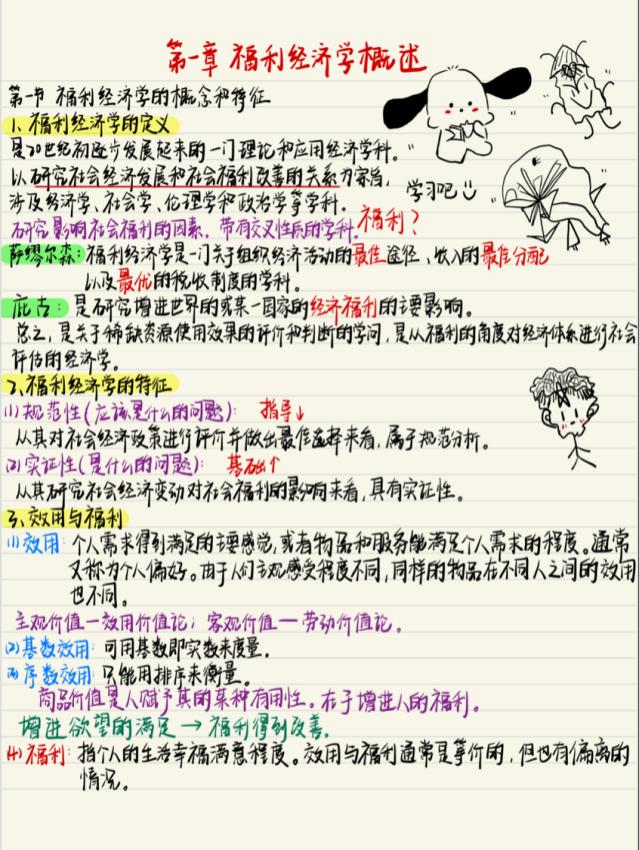 第一章 福利经济学概述
第一节 福利经济学的概念和特征
1、福利经济学的定义
是20世纪初逐步发展起来的一门理论和应用经济学科。
以研究社会经济发展和社会福利改善的关系为宗旨,
涉及经济学、社会学、伦理学和政治学等学科。
学习吧
研究影响社会福利的因素,带有交叉性质的学科。
福利?
萨缪尔森:福利经济学是一门关于组织经济活动的最佳途径、收入的最佳分配
以及最优的税收制度的学科。
庇古:是研究增进世界的或某一国家的经济福利的主要影响。
总之,是关于稀缺资源使用效果的评价和判断的学问,是从福利的角度对经济体系进行社会
评估的经济学。
2、福利经济学的特征
(1)规范性(应该是什么的问题): 指导↓
从其对社会经济政策进行评价并做出最佳选择来看,属于规范分析。
(2)实证性(是什么的问题): 基础↑
从其研究社会经济变动对社会福利的影响来看,具有实证性。
3、效用与福利
(1)效用:个人需求得到满足的主要感觉,或者物品和服务能满足个人需求的程度。通常
又称为个人偏好。由于人们主观感受程度不同,同样的物品在不同人之间的效用
也不同。
主观价值—效用价值论;客观价值—劳动价值论。
(2)基数效用:可用基数即实数来度量。
(3)序数效用:只能用排序来衡量。
商品价值是人赋予其的某种有用性。在于增进人的福利。
增进欲望的满足→福利得到改善.
(4)福利:指个人的生活幸福满意程度。效用与福利通常是等价的,但也有偏离的
情况。